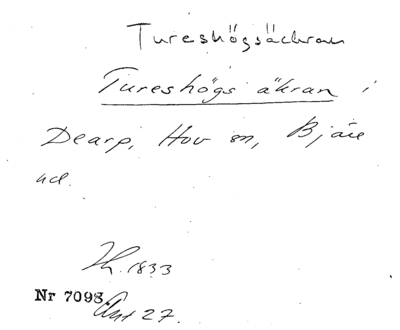 Tureshögsäckran
Tureshögs åkran i
Dearp, Hov sn, Bjäre
hd.
Lh. 1833
Nr 7098
Akt 27.